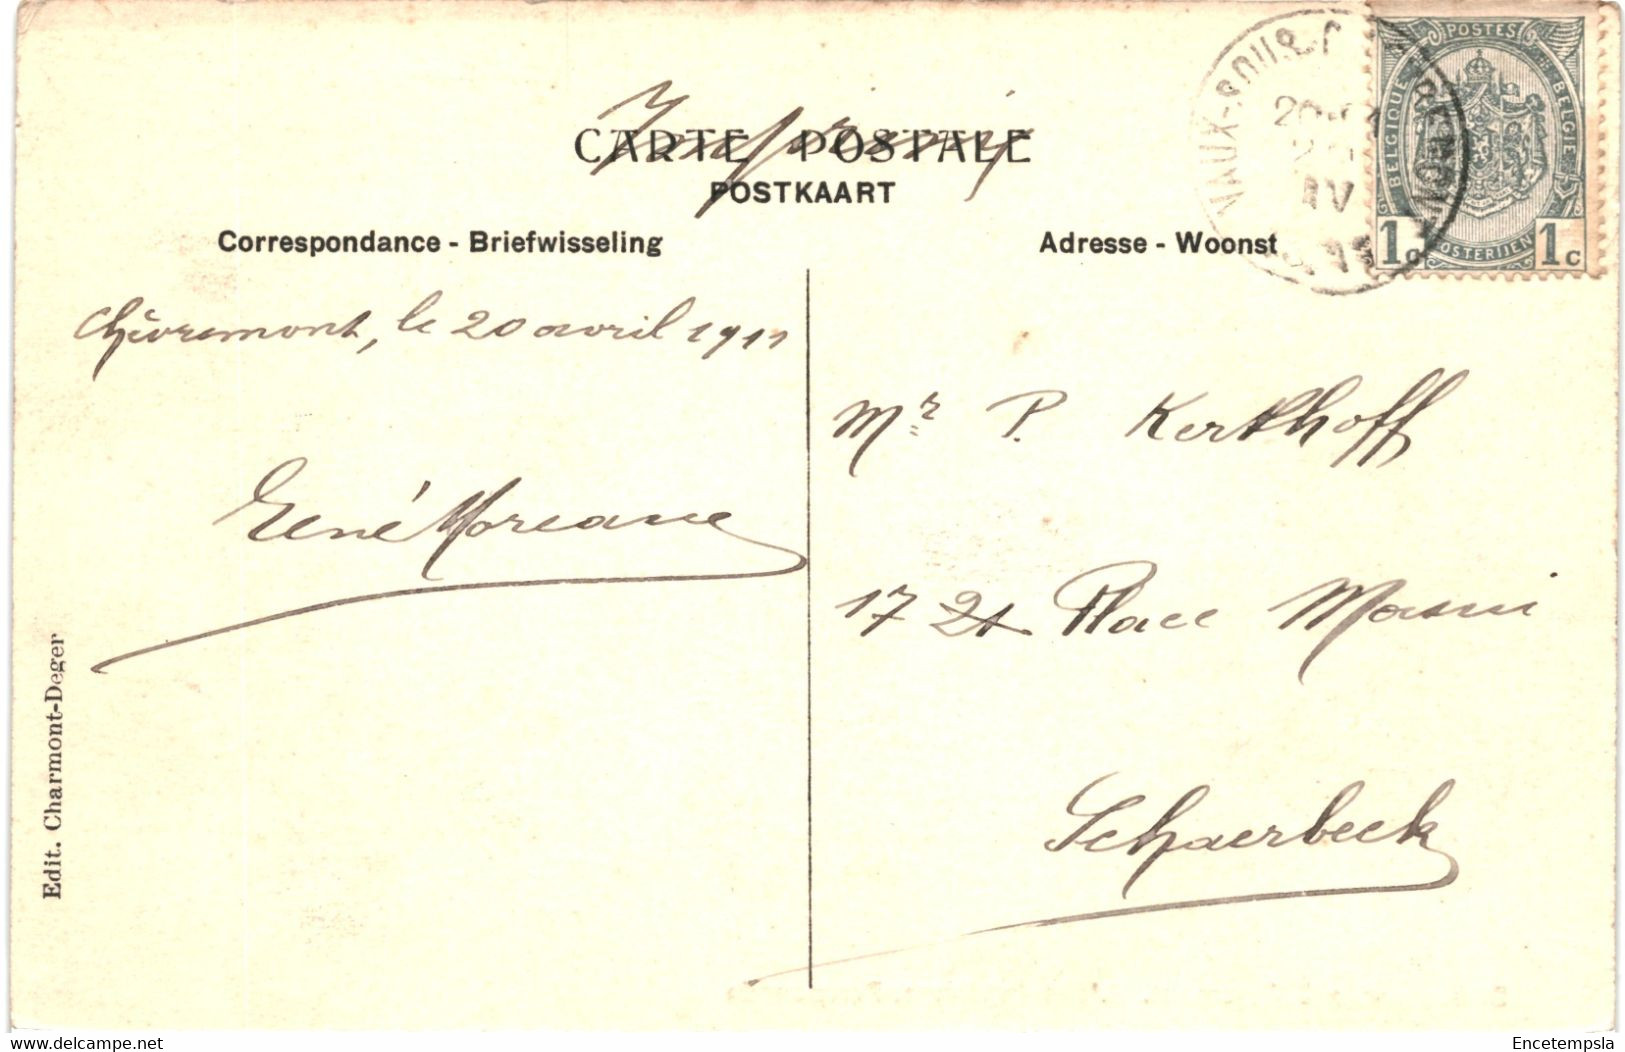 CARTE POSTALE
Imprimé
POSTKAART
Correspondance - Briefwisseling
Adresse - Woonst
POSTES
BELGIQUE
BELGIE
POSTERIJEN
1c 1c
VAUX-SOUS-
AV
11
Chèvremont, le 20 avril 1911
René Moreaux
Mr P. Kerkhoff
17 21 Place Masui
Schaerbeek
Edit. Charmont-Deger
delcampe.net
Encetempsla